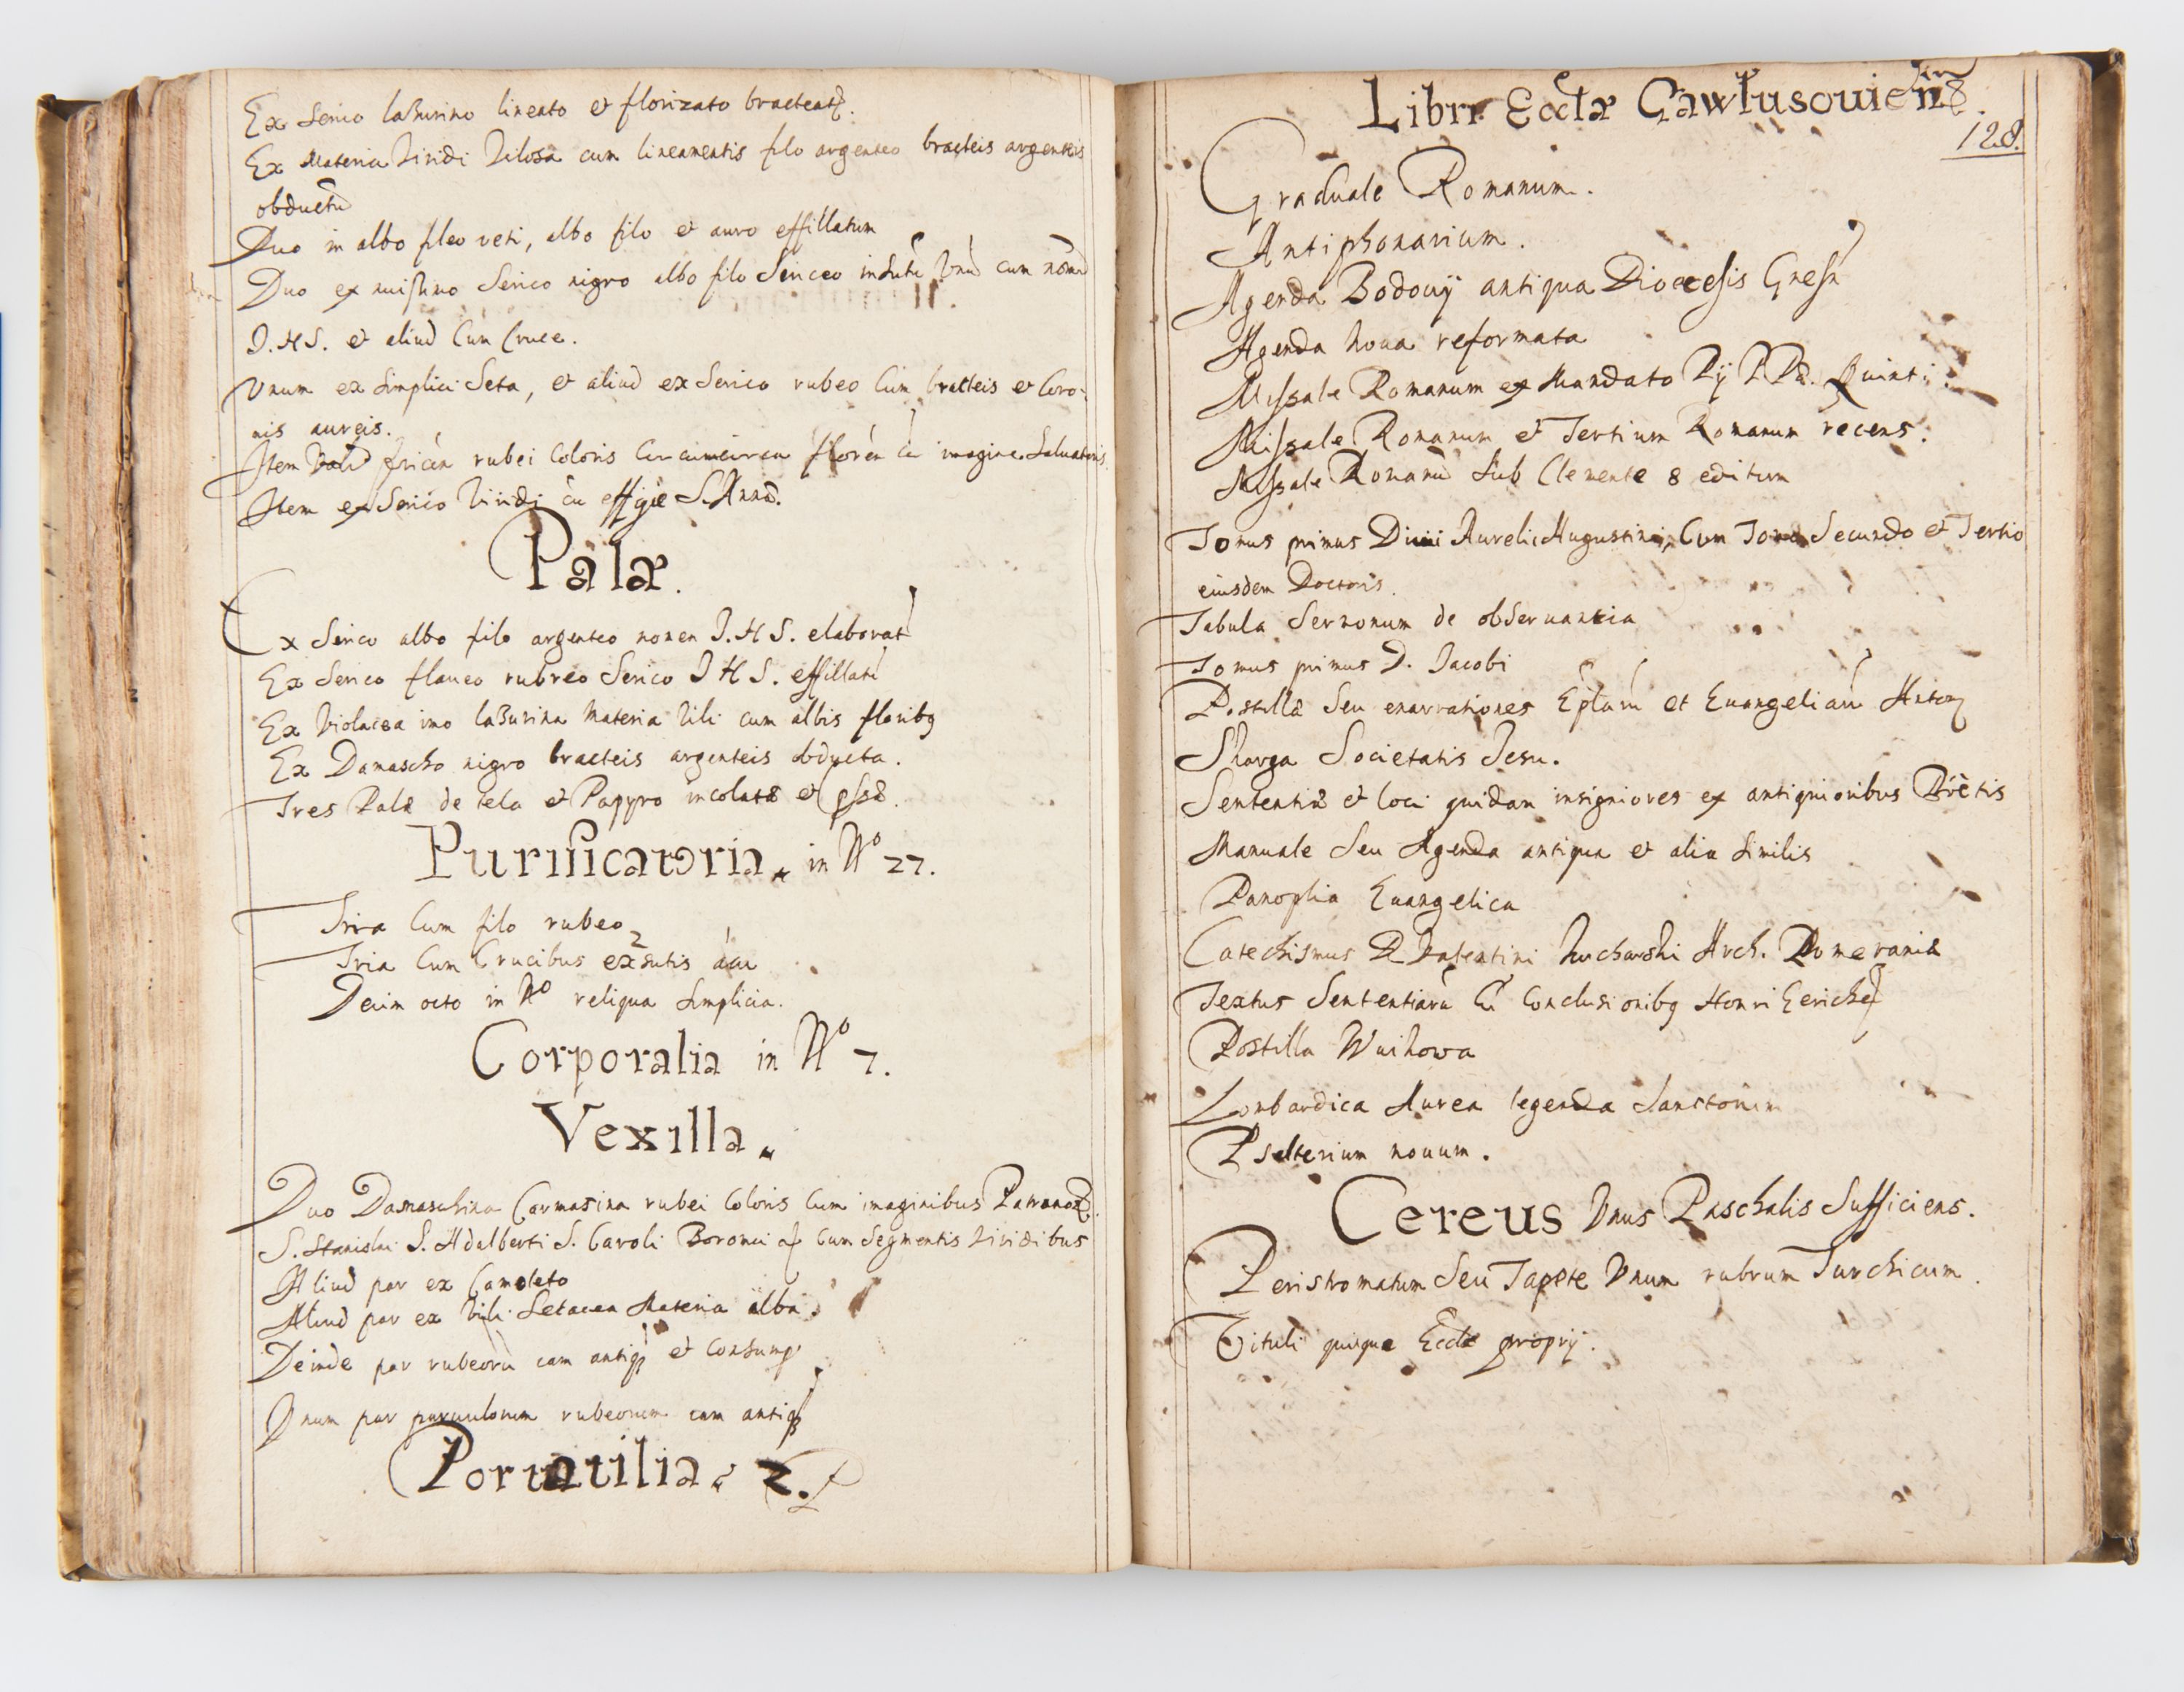 Ex Serico laZurino lineato et florizato bracteatę.
Ex Materia Viridi Vilosa cum lineamentis filo argenteo bracteis argenteis
obductũ
Duo in albo veti, albo filo et auro effillatum
Duo ex Serico nigro albo filo Sericeo Vnũ cum nomĩe
I.HS. et aliud Cum Cruce.
Vnum ex Simplici Seta, et aliud ex Serico rubeo Cum bracteis et Coro-
nis aureis.
Item rubei Coloris Circumcirca cũ imagine Saluatoris.
Item ex Serico Viridi cũ effigie S. Annæ.
Palæ.
Ex Serico albo filo argenteo nomen I.H S. elaborat
Ex Serico flaueo rubreo Serico I H S. effillatũ
Ex Violacea imo laZurina Materia Vili cum albis floribq
Ex Damascho nigro bracteis argenteis obducta.
Tres Palæ de tela et Papyro incolatæ et
Purificatoria. in Nº 27.
Tria Cum filo rubeo
Tria Cum Crucibus exsutis acu
Decim octo in Nº reliqua Simplicia.
Corporalia in Nº 7.
Vexilla.
Duo Damaschina Carmasina rubei Coloris Cum imaginibus Patronoꝝ.
S. Stanislai S. Adalberti S. Caroli Boromei Cum Segmentis Viridibus
Aliud par ex Camoleto
Aliud par ex Vili Setacea Materia alba.
Deinde par rubeorũ iam et
Vnum par paruulorum rubeorum iam
Portatilia. 2.
Libri Ecclæ Gawłusouien8.
128.
Graduale Romanum.
Antiphonarium.
Agenda Bodouij antiqua Dioecesis Gnesn
Agenda noua reformata
Missale Romanum ex Mandato Pij PPæ. Quinti.
Missale Romanum et Tertium Romanum recens.
Missale Romanũ Sub Clemente 8 editum
Tomus primus Diuii Aurelii Augustini, Cum Tomo Secundo et Tertio
eiusdem Doctoris.
Tabula Sermonum de obseruantia
Tomus primus D. Jacobi
Postillæ Seu enarrationes Eplarũ et Euangeliarũ
Skarga Societatis Jesu.
Sententiæ et loci quidam insigniores ex antiquioribus
Manuale Seu Agenda antiqua et alia similis
Panoplia Euangelica
Catechismus D Valentini Kuchorski Arch. Pomeraniæ
Textus Sententiarũ Cũ Conclusionibq Henri
Postilla Wuikowa
Lombardica Aurea legenda Sanctorum
Psalterium nouum.
Cereus Vnus Paschalis Sufficiens.
Peristromatum Seu Tapete Vnum rubrum Turchicum.
Tituli quique Ecclæ proprij.